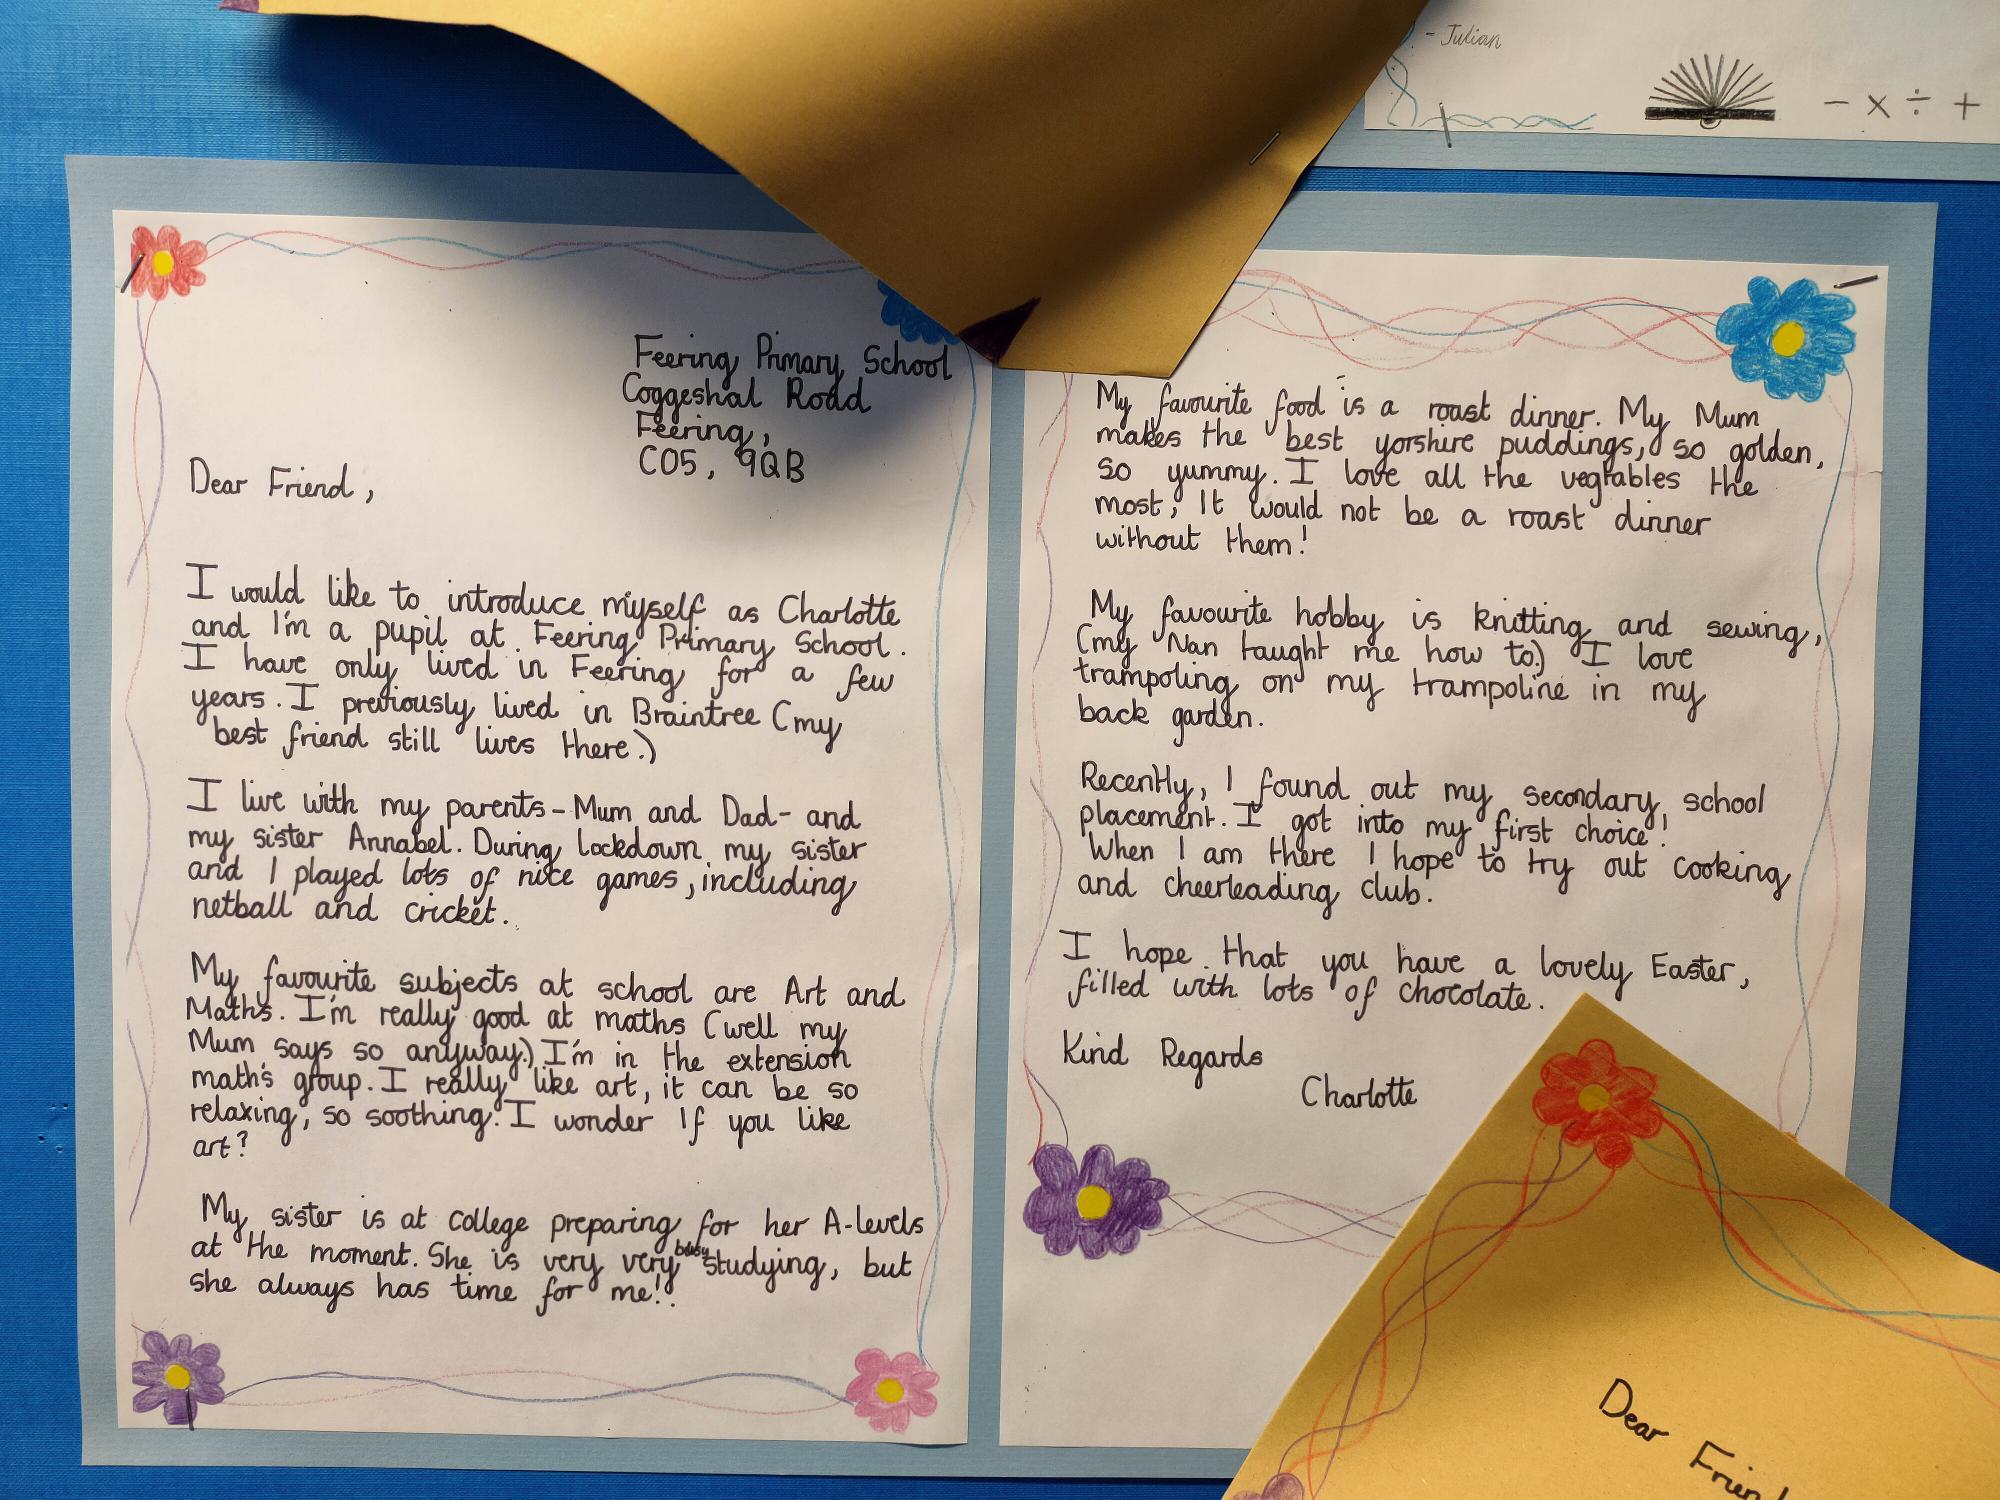 - Julian
- x ÷ +
Feering Primary School
Coggeshal Road
Feering,
CO5, 9QB
Dear Friend,
I would like to introduce myself as Charlotte
and I'm a pupil at Feering Primary School.
I have only lived in Feering for a few
years. I previously lived in Braintree (my
best friend still lives there.)
I live with my parents - Mum and Dad - and
my sister Annabel. During lockdown my sister
and I played lots of nice games, including
netball and cricket.
My favourite subjects at school are Art and
Maths. I'm really good at maths (well my
Mum says so anyway.) I'm in the extension
math's group. I really like art, it can be so
relaxing, so soothing. I wonder If you like
art?
My sister is at college preparing for her A-levels
at the moment. She is very very busy studying, but
she always has time for me!!
My favourite food is a roast dinner. My Mum
makes the best yorshire puddings, so golden,
so yummy. I love all the vegtables the
most, It would not be a roast dinner
without them!
My favourite hobby is knitting and sewing,
(my Nan taught me how to.) I love
trampoling on my trampoline in my
back garden.
Recently, I found out my secondary school
placement. I got into my first choice!
When I am there I hope to try out cooking
and cheerleading club.
I hope that you have a lovely Easter,
filled with lots of chocolate.
Kind Regards
Charlotte
Dear Friend